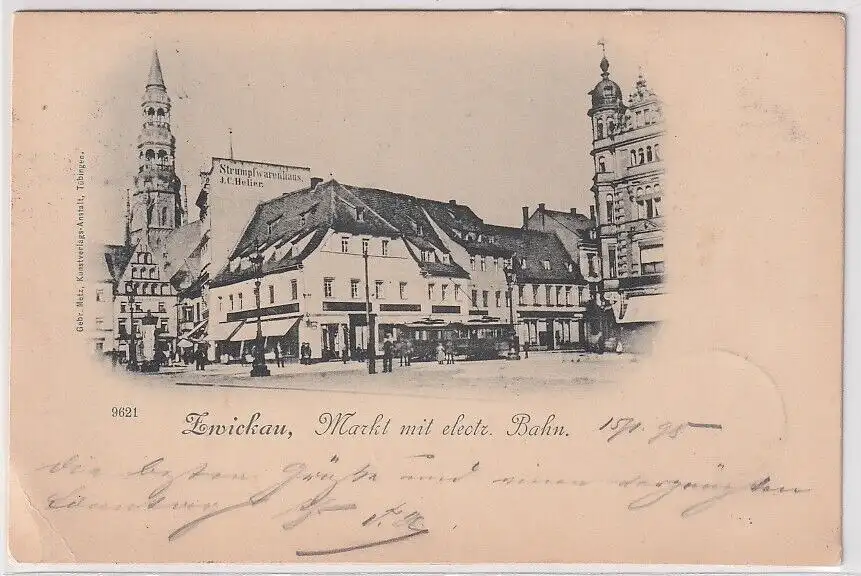 Strumpfwarenhaus.
J.C. Hefier.
Gebr. Metz, Kunstverlags-Anstalt, Tübingen.
9621
Zwickau, Markt mit electr. Bahn.
Die besten Grüße und einen vergnügten